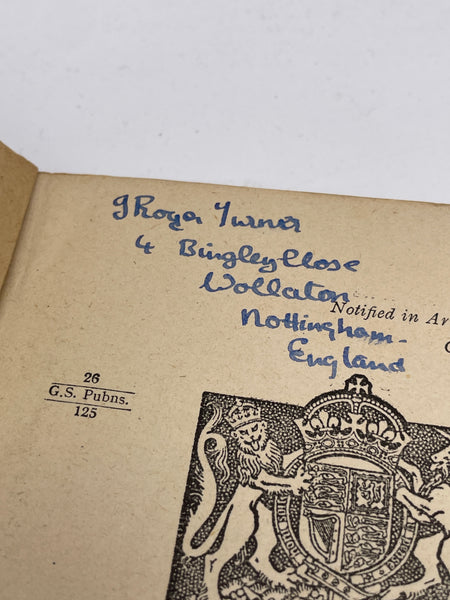 J Roger Turner
4 Bingley Close
Wollaton
Nottingham.
England
Notified in Ar
26
G.S. Pubns.
125